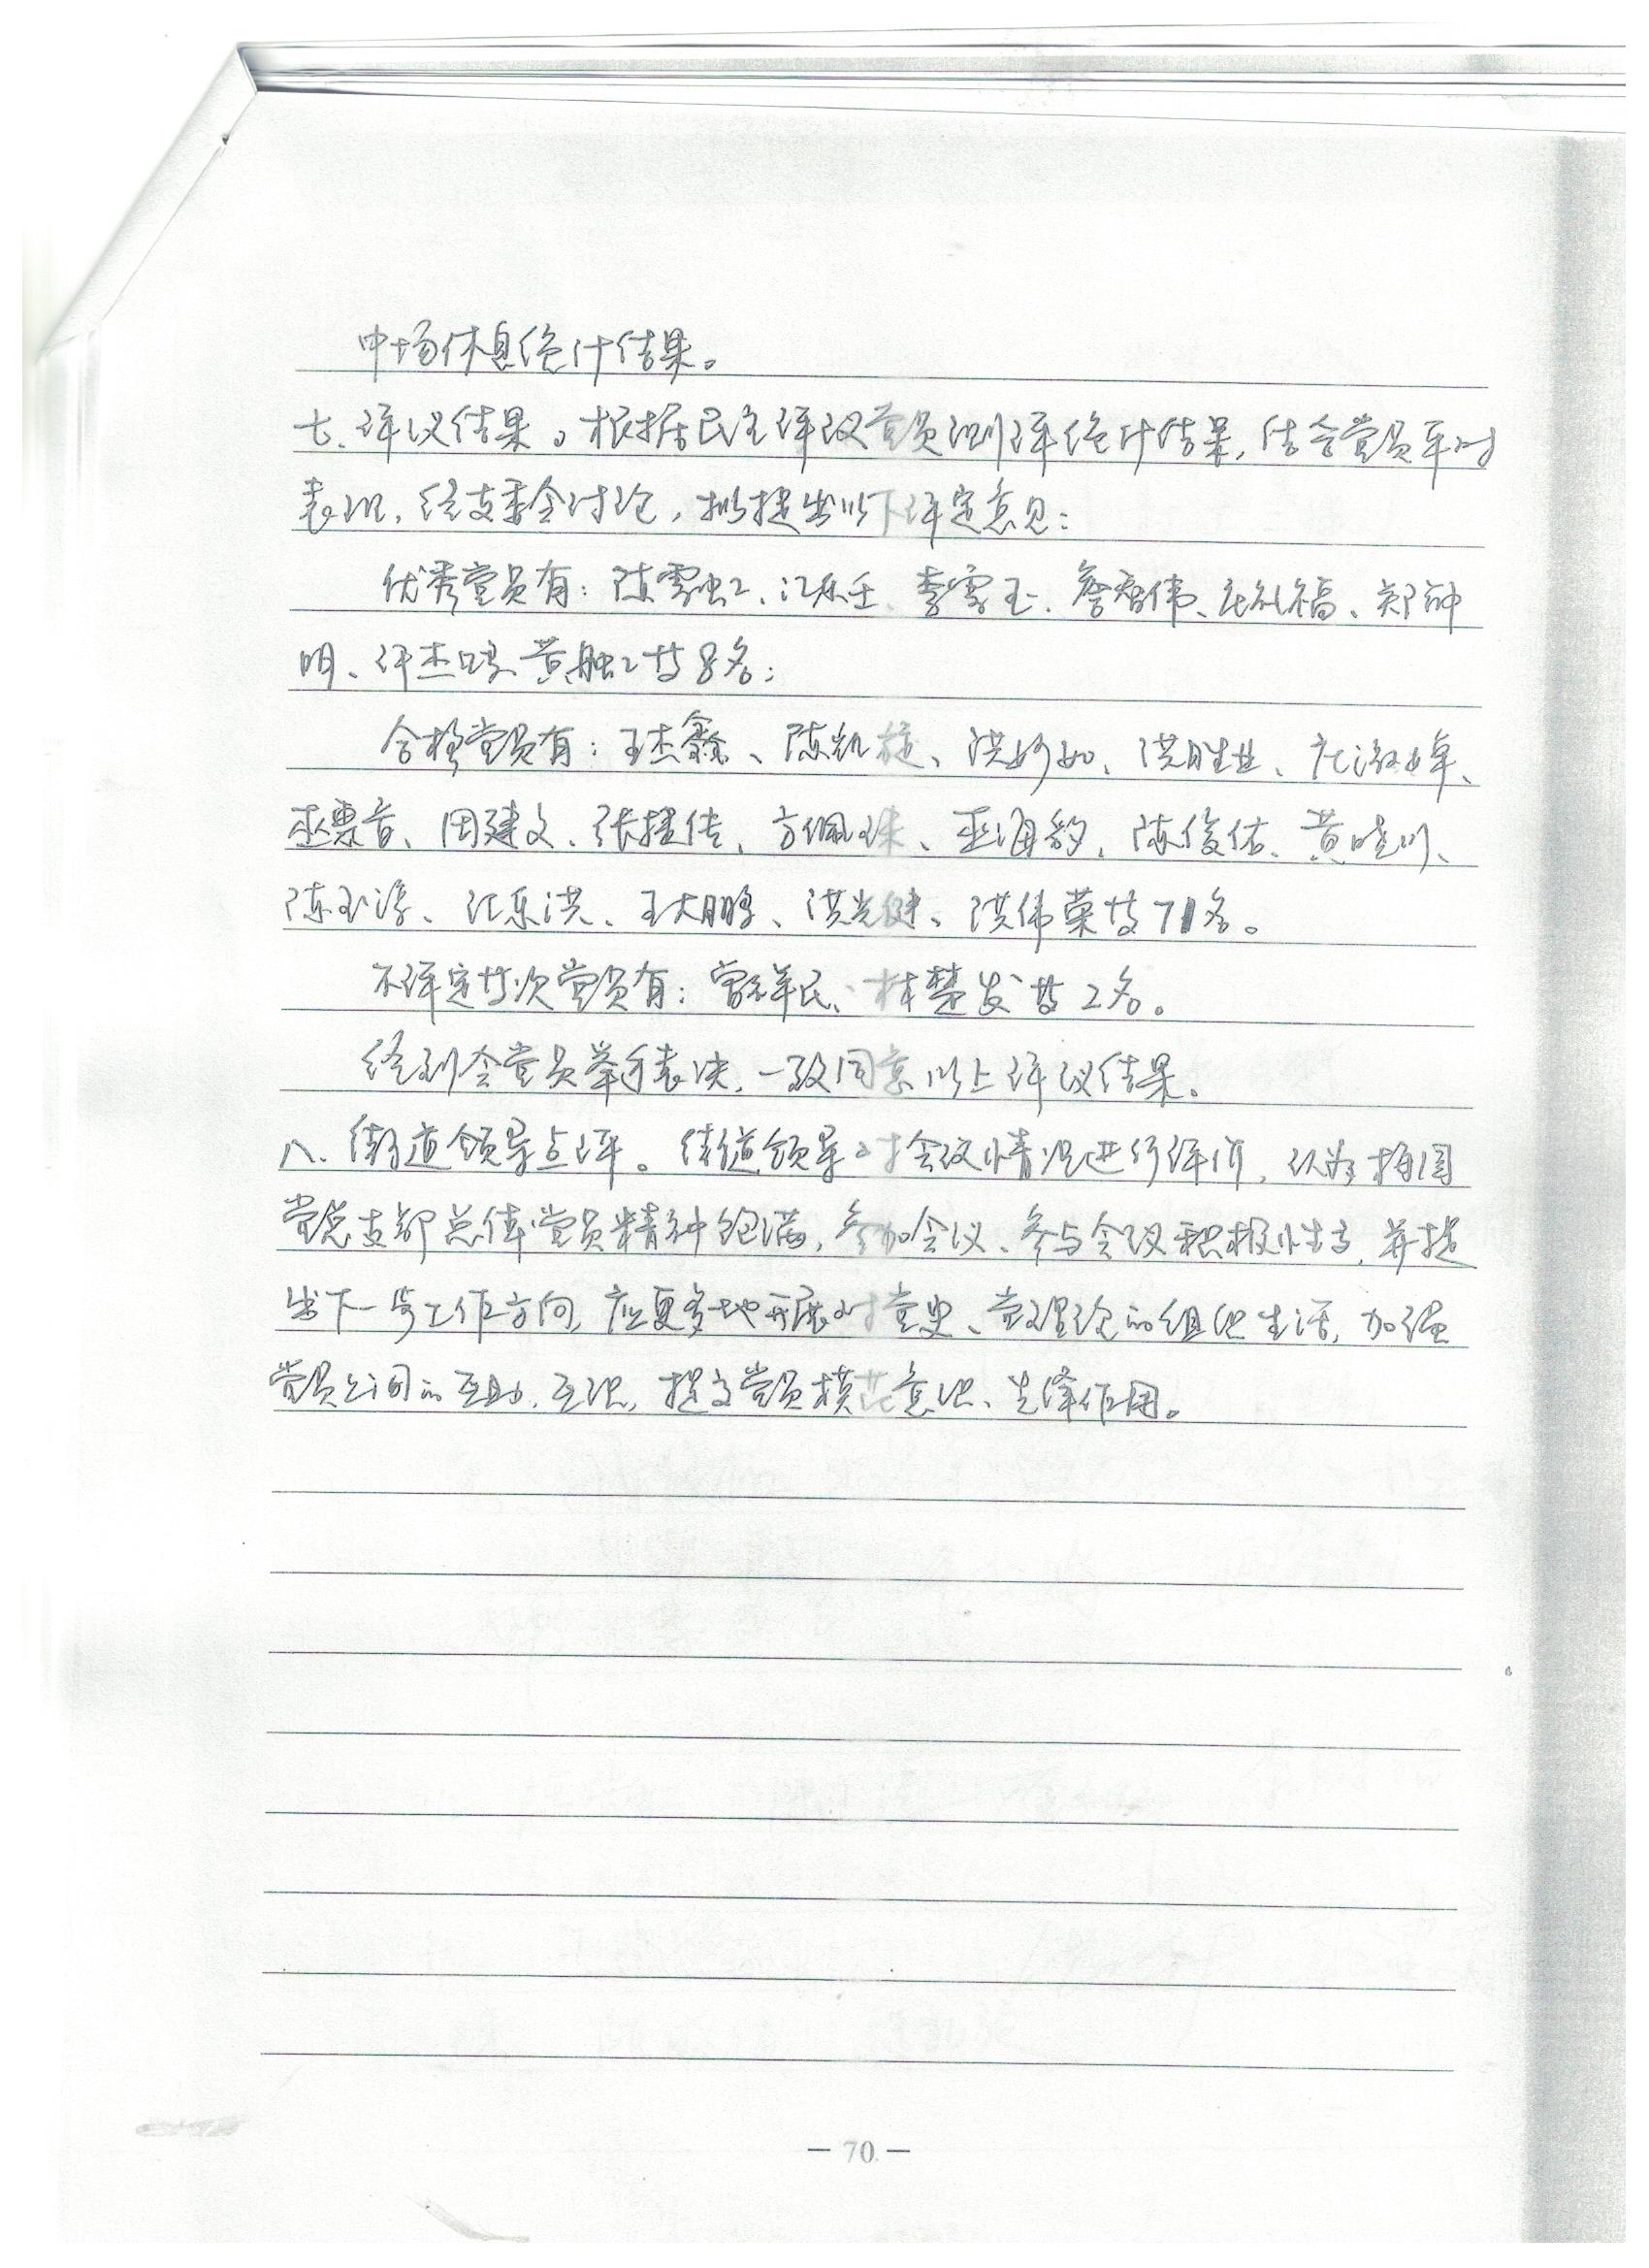 中场休息统计结果。
七、评议结果。根据民主评议党员测评统计结果,结合党员平时
表现,经支委会讨论,拟提出以下评定意见:
优秀党员有:陈雪虹、江乐壬、李雪玉、詹智伟、庄礼福、郑钟
明、许杰鸿、黄舢等8名;
合格党员有:王杰鑫、陈凯旋、洪妙如、洪胜业、庄淑婵、
巫惠音、周建文、张楚佳、方佩珠、巫海豹、陈俊佑、黄晓川、
陈玉淳、江乐洪、王大鹏、洪光健、洪伟荣等71名。
不评定等次党员有:曾祥民、林楚发等2名。
经到会党员举手表决,一致同意以上评议结果。
八、街道领导点评。街道领导对会议情况进行评价,认为梅园
党总支部总体党员精神饱满,参加会议、参与会议积极性高,并提
出下一步工作方向,应更多地开展对党史、党理论的组织生活,加强
党员之间的互助、互识,提高党员模范意识、先锋作用。
— 70 —